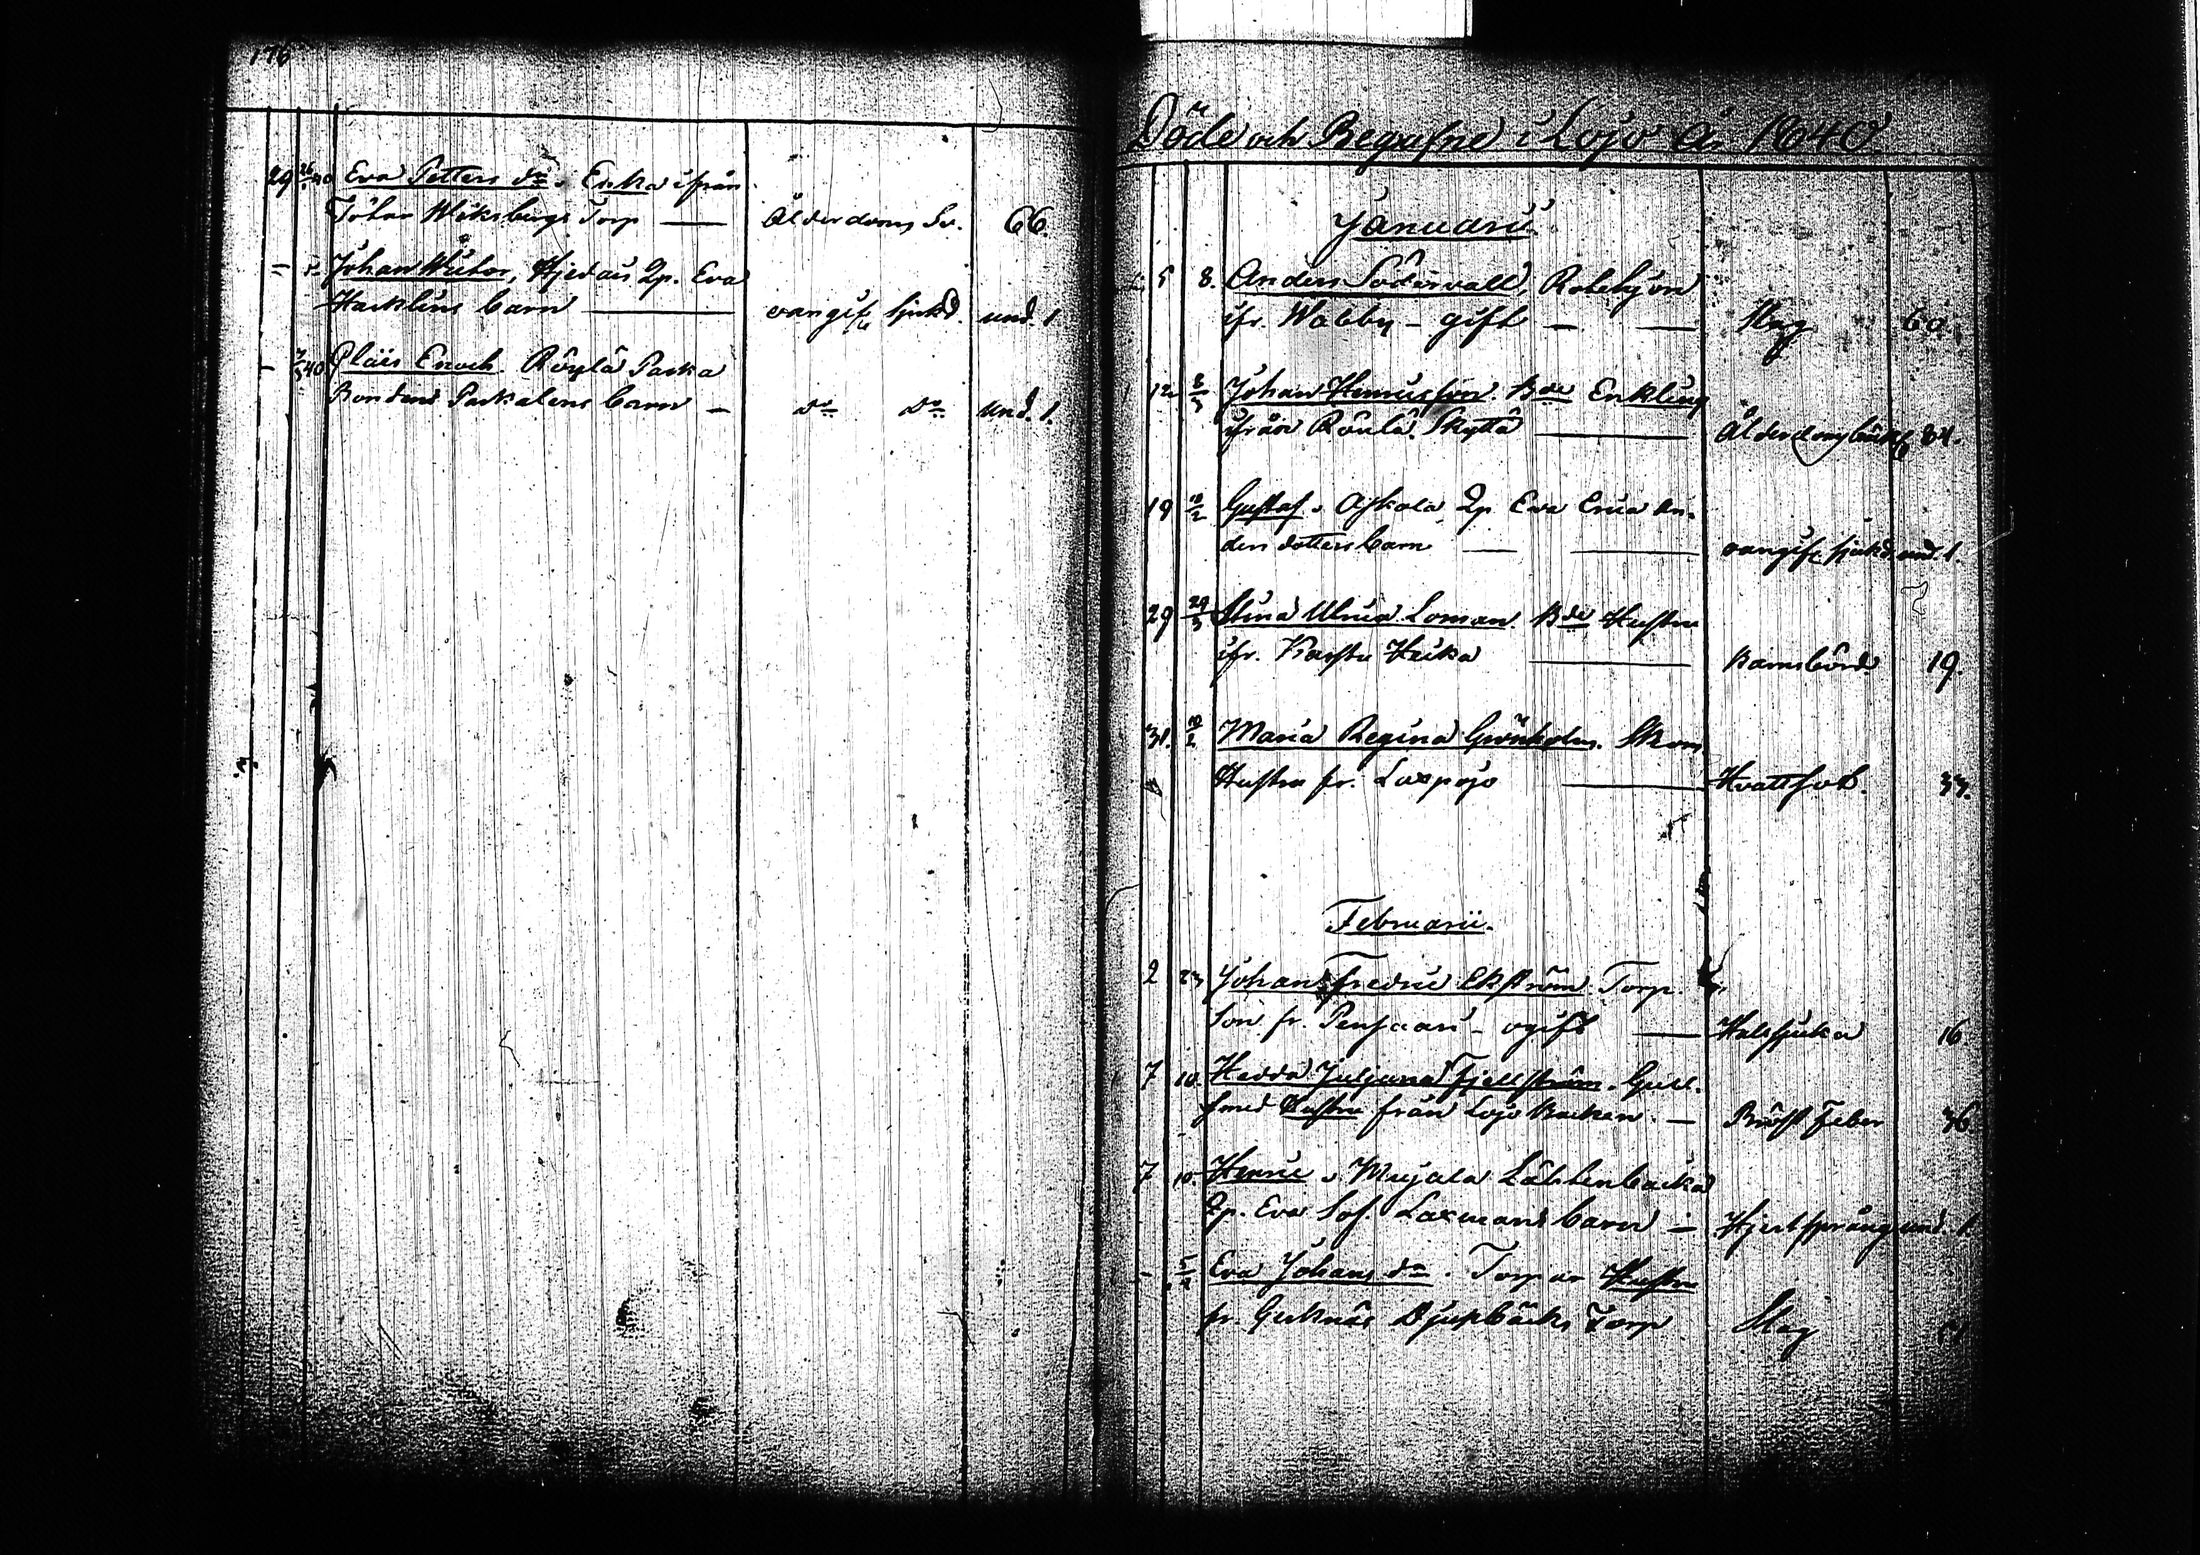 176
29 26/1 40 Eva Petters dr. Enka ifrån
Johan Wiksbergs Torp — Ålderdoms Sv. 66.
Johan Wictor, Hjedais Qp. Eva
Hacklins barn — oangifv. sjukd. und. 1
Pläis Enoch. Röylä Paska
Bondens Paskalens barn — do do und. 1.
Döde och Begrafne i Lojo År 1840.
Januarii
5 8. Anders Södervall, Rotehjon
ifr. Wabby – gift — — Slag 60.
12 8/3 Johan Henricsson. Bde Enkling
ifrån Röylä Skyttä — Ålderdomsbräckl. 84.
19 10/2 Gustaf. Ayskola Qp Eva Erica An-
ders dotters barn — — oangifv. sjukd. und. 1.
29 29/3 Stina Ulrica Loman. Bde Hustru
ifr. Karstu Heika — Barnsbörd. 19.
31. 10/2 Maria Regina Grönholm. Skom.
Hustru fr. Laxpojo — Hvattsot. 33.
Februarii.
2 23 Johan Fredric Ekström Torp.
Son fr. Pensaari – ogift — Halssjuka 16
7 10. Hedda Juliana Fjellström. Guld-
smed Hustru från Lojo Backen. — Bröst Feber 36
7 10. Henric. Muijala Lähtenbacka
Qp. Eva Sof. Laxmans barn — Hjertsprång und. 1.
– 5/4 Eva Johans dr. Torpar Hustru
fr. Gerknäs Djupbäcks Torp Slag